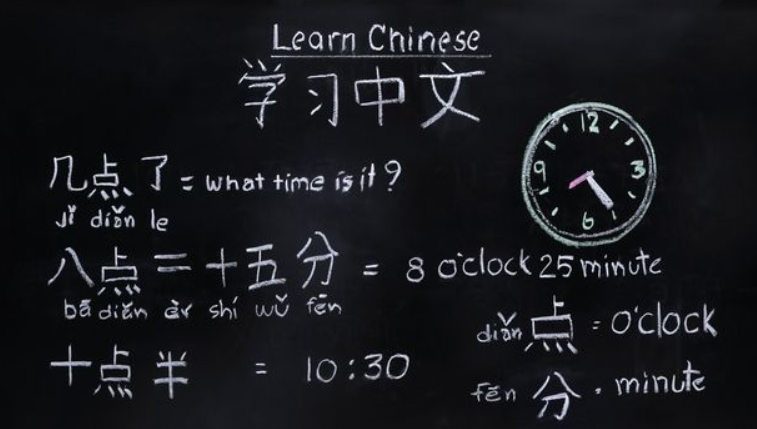 Learn Chinese
学习中文
12
9 3
6
几点了 = what time is it?
jǐ diǎn le
八点二十五分 = 8 o'clock 25 minute
bā diǎn èr shí wǔ fēn
diǎn 点 = o'clock
十点半 = 10:30
fēn 分 . minute